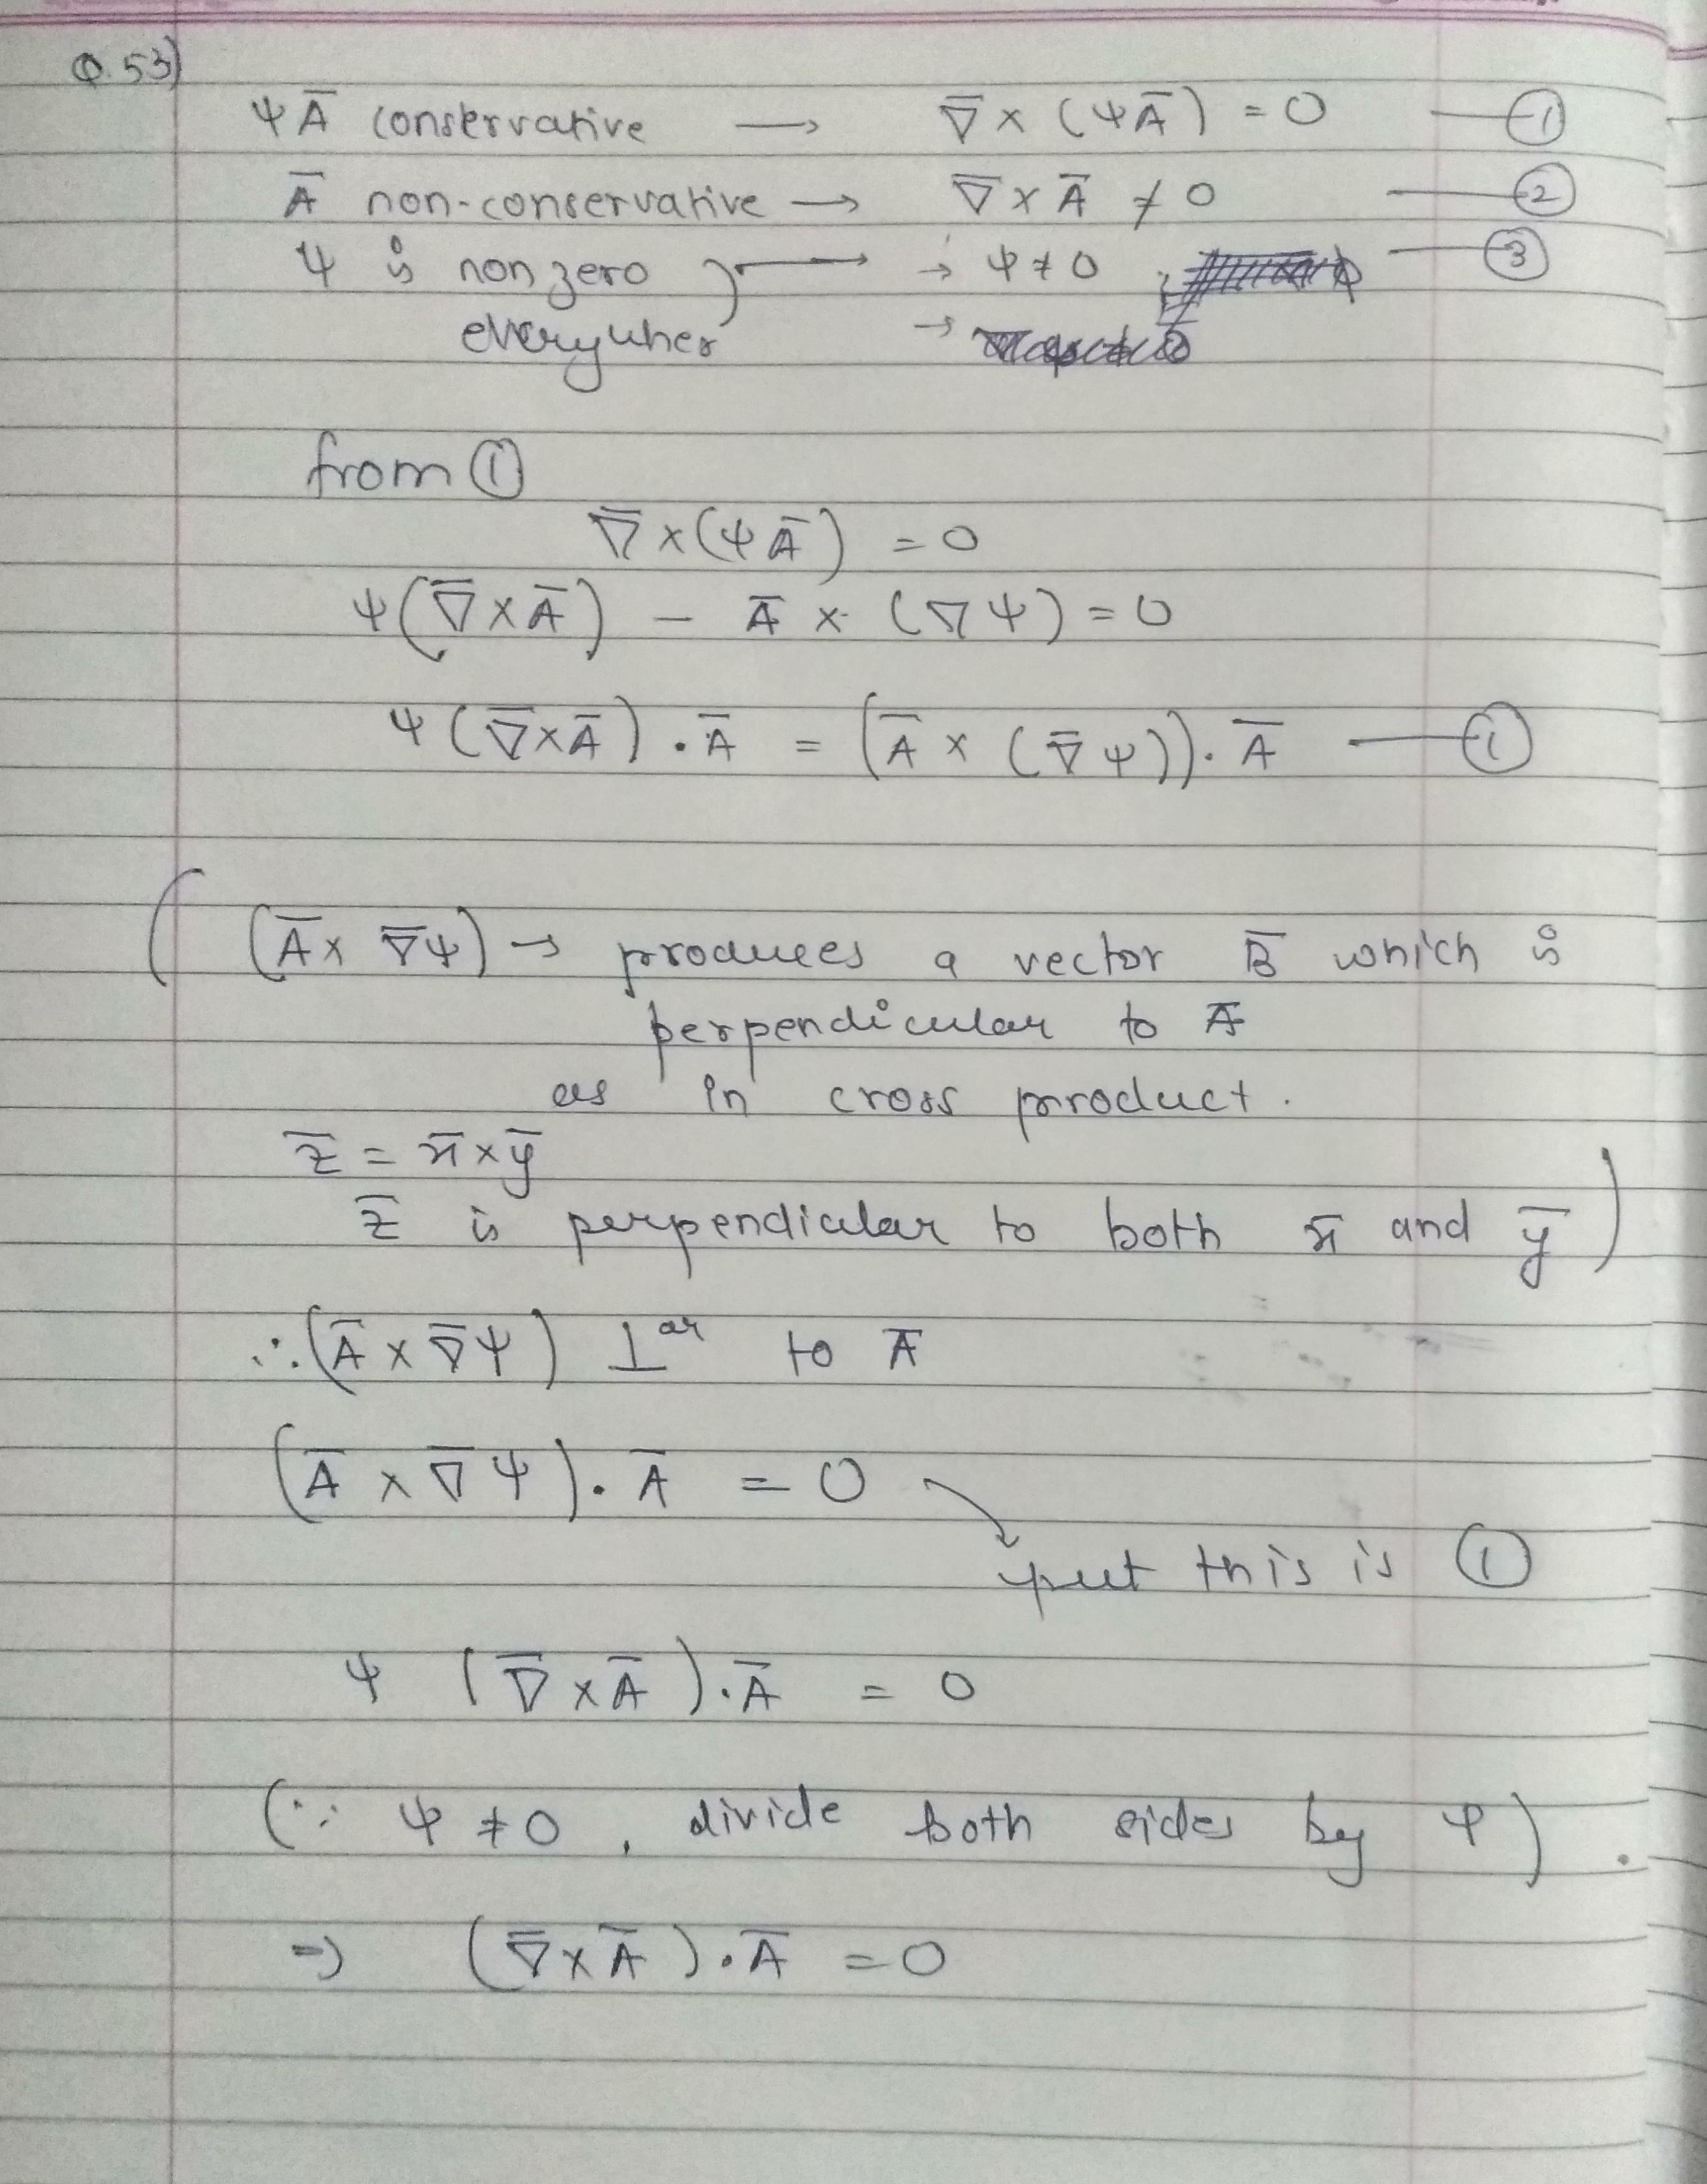 Q.53)
ψĀ conservative → ∇̄ × (ψĀ) = 0 — ①
Ā non-conservative → ∇̄ × Ā ≠ 0 — ②
ψ is non zero → → ψ ≠ 0 — ③
everywher →
from ①
∇̄ × (ψĀ) = 0
ψ(∇̄ × Ā) − Ā × (∇ψ) = 0
ψ(∇̄×Ā) . Ā = (Ā × (∇̄ψ)). Ā — ①
( (Ā × ∇̄ψ) → produces a vector B̄ which is
perpendicular to Ā
as in cross product.
z̄ = x̄ × ȳ
z̄ is perpendicular to both x̄ and ȳ )
∴ (Ā × ∇̄ψ) ⊥ar to Ā
(Ā × ∇̄ψ). Ā = 0
put this is ①
ψ (∇̄ × Ā).Ā = 0
(∵ ψ ≠ 0 , divide both sides by ψ) .
⇒ (∇̄ × Ā).Ā = 0